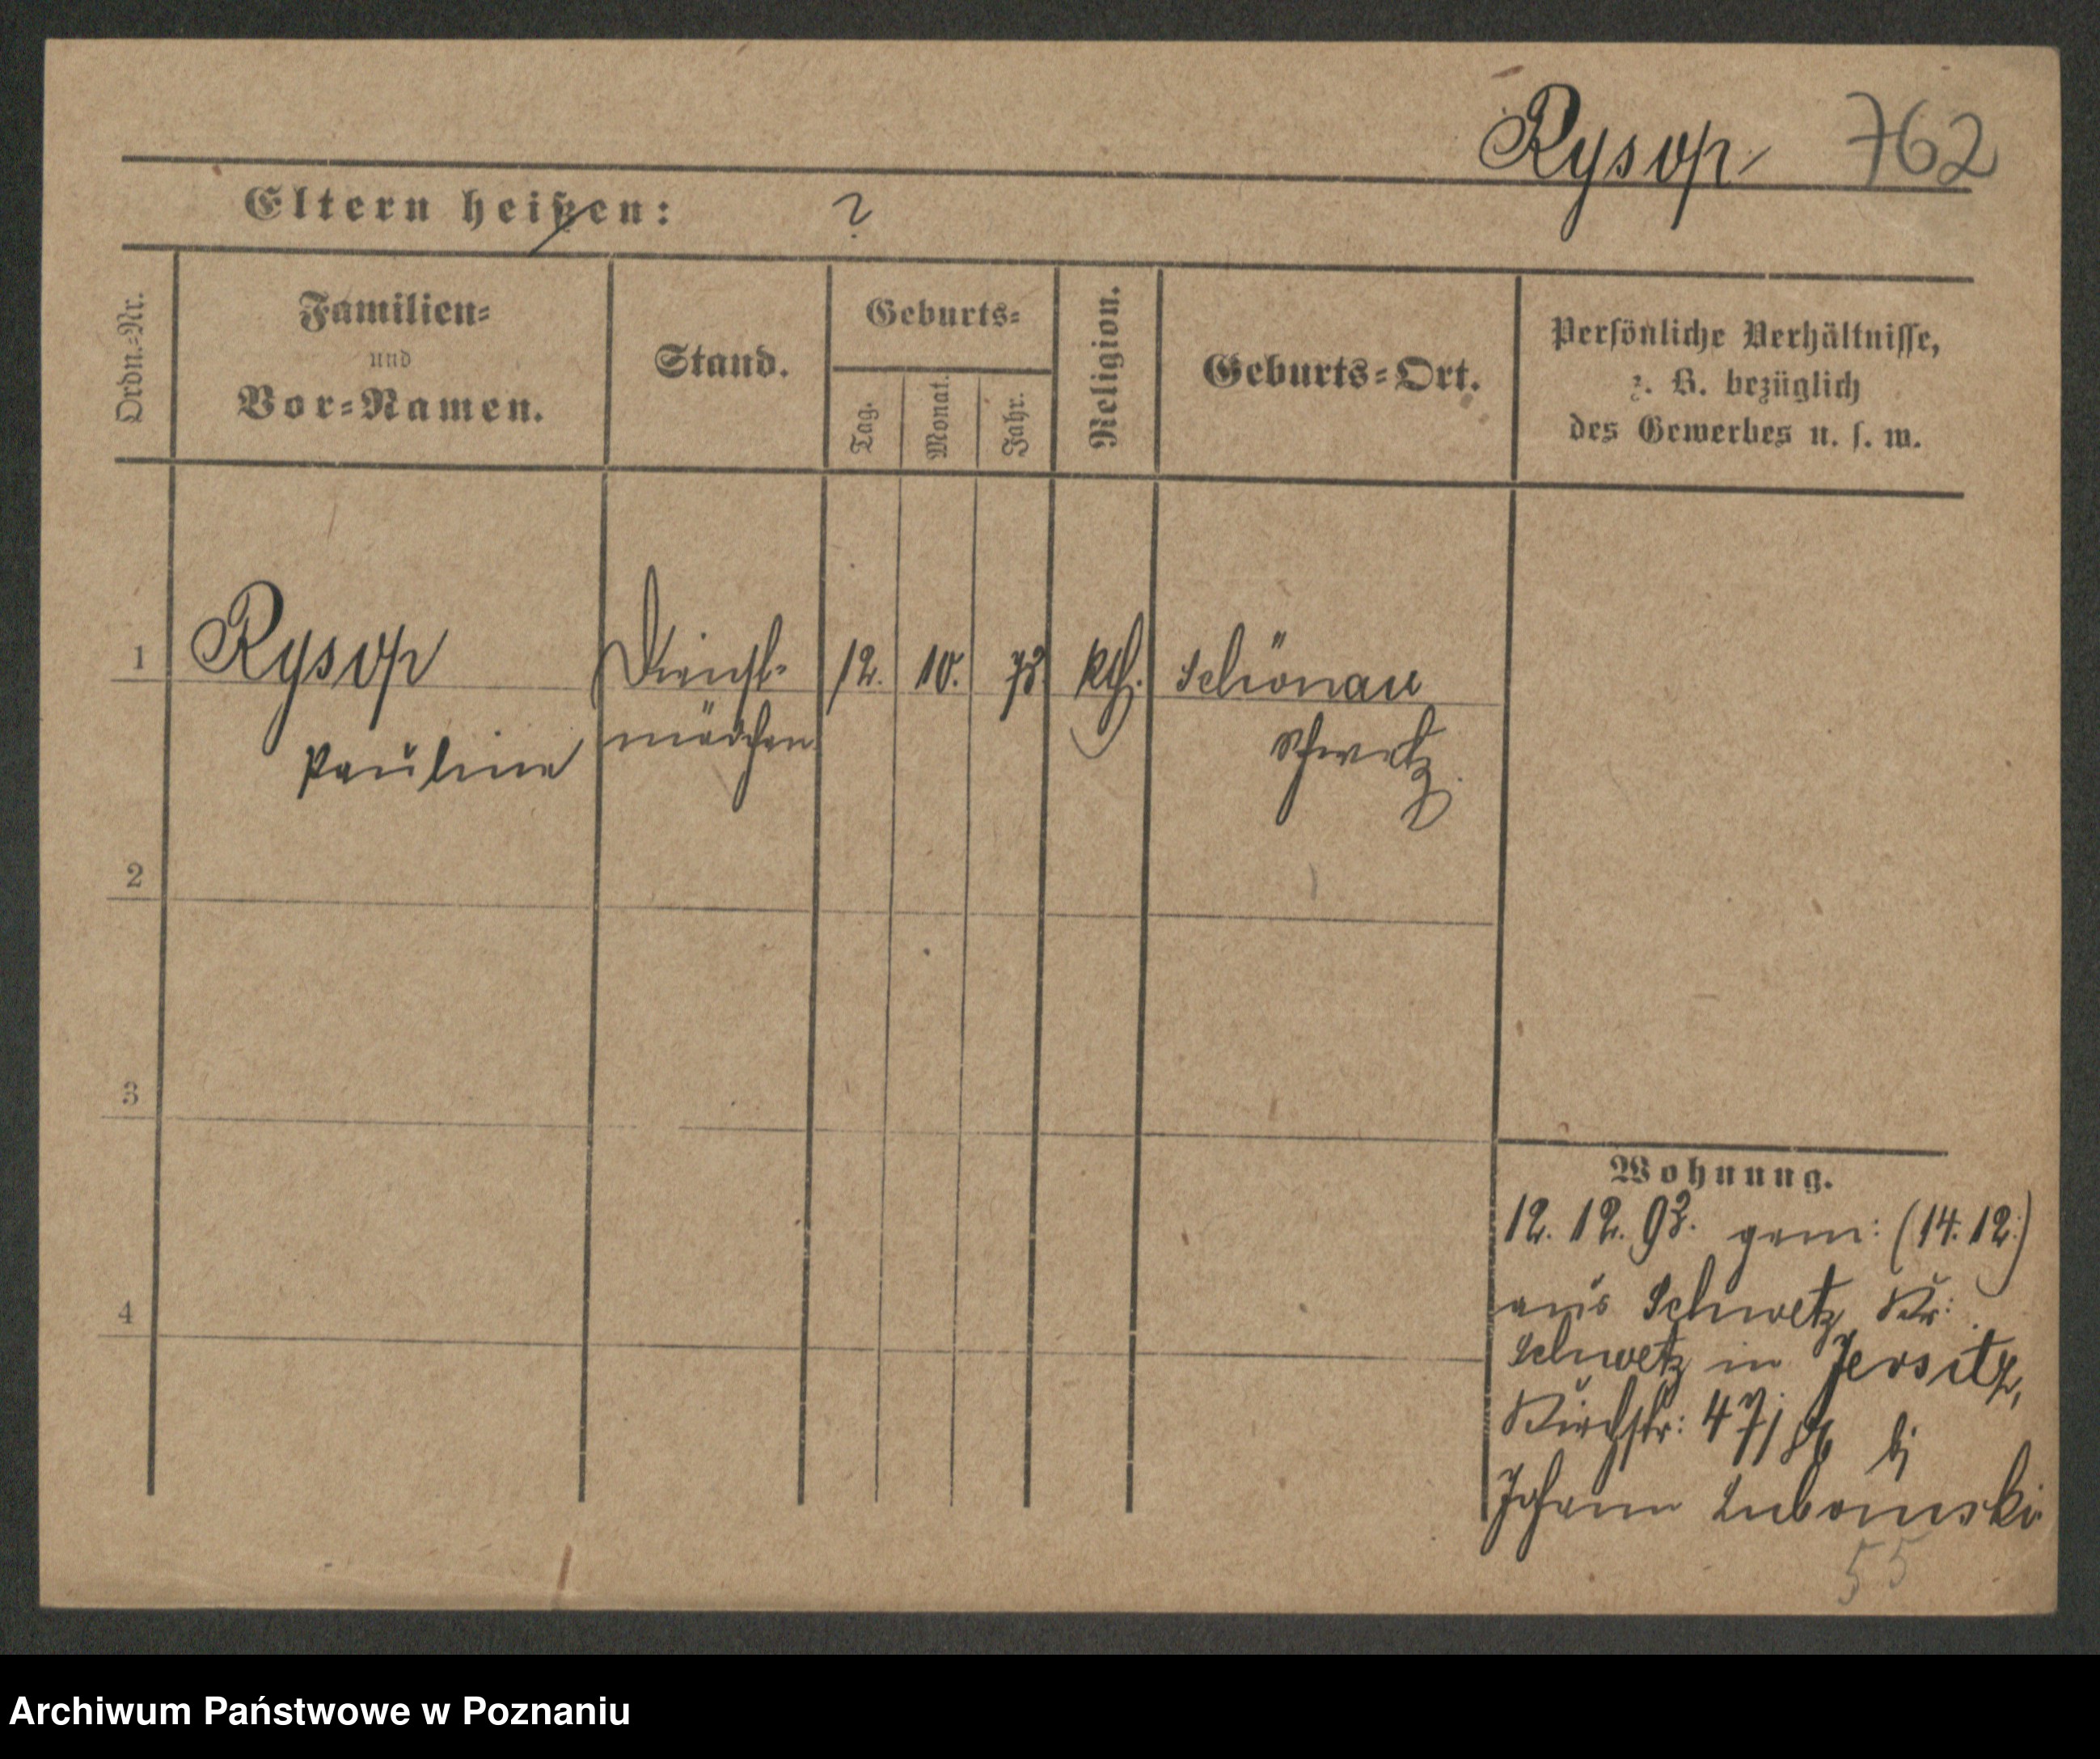 Rysop 762
Eltern heißen: ?
Ordn.-Nr.
Familien-
und
Vor-Namen.
Stand.
Geburts-
Tag.
Monat.
Jahr.
Religion.
Geburts-Ort.
Persönliche Verhältnisse,
z. B. bezüglich
des Gewerbes u. s. w.
1 Rysop Dienst- 12. 10. 73 kth. Schönau
Pauline mädchen Schwetz
2
3
4
Wohnung.
12. 12. 93. gem: (14. 12.)
aus Schwetz Kr:
Schwetz in Jersitz,
Kirchstr: 47 bei
Johann Lubomski
55
Archiwum Państwowe w Poznaniu